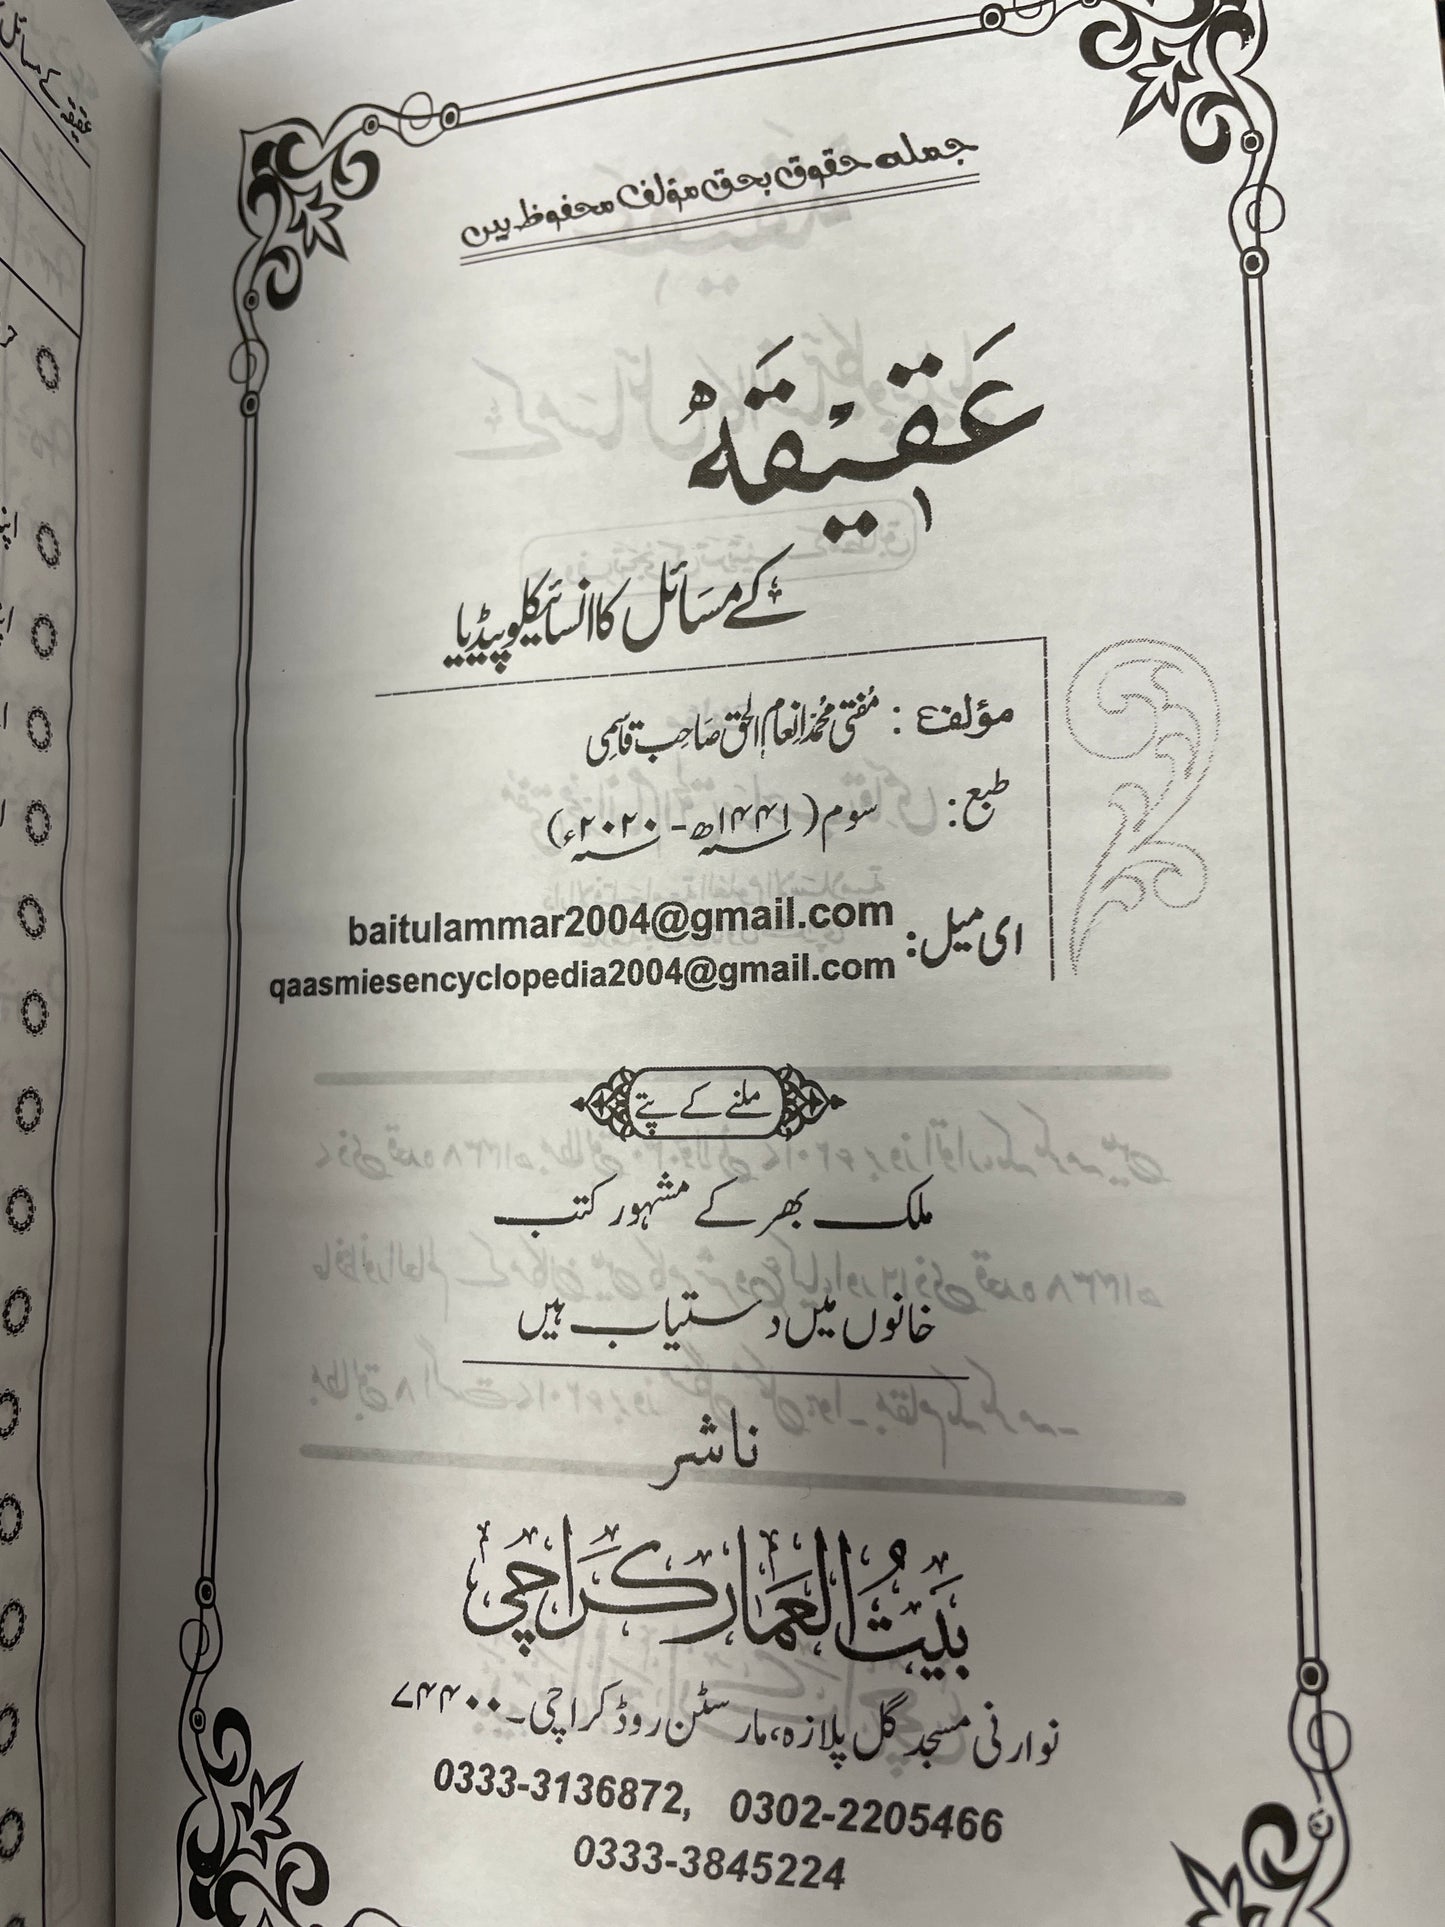 جملہ حقوق بحق مؤلف محفوظ ہیں
عَقِیْقَہْ
کے مَسَائل کا انسائیکلوپیڈیا
مؤلف : مُفتی مُحمّد اِنعامُ الحق صَاحِب قاسمی
طبع : سوم (۱۴۴۱ھ - ۲۰۲۰ء)
ای میل : baitulammar2004@gmail.com
qaasmiesencyclopedia2004@gmail.com
ملنے کے پتے
ملک بھر کے مشہور کتب
خانوں میں دستیاب ہیں
ناشر
بَیتُ العَمار کَراچی
نوارنی مسجد گل پلازہ، مارسٹن روڈ کراچی۔ ۷۴۴۰۰
0333-3136872, 0302-2205466
0333-3845224
عقیقہ کے مسائل